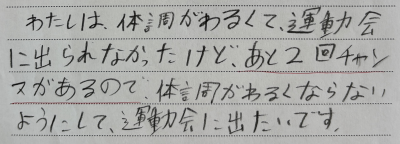 わたしは、体調がわるくて、運動会
に出られなかったけど、あと2回チャン
スがあるので、体調がわるくならない
ようにして、運動会に出たいです。